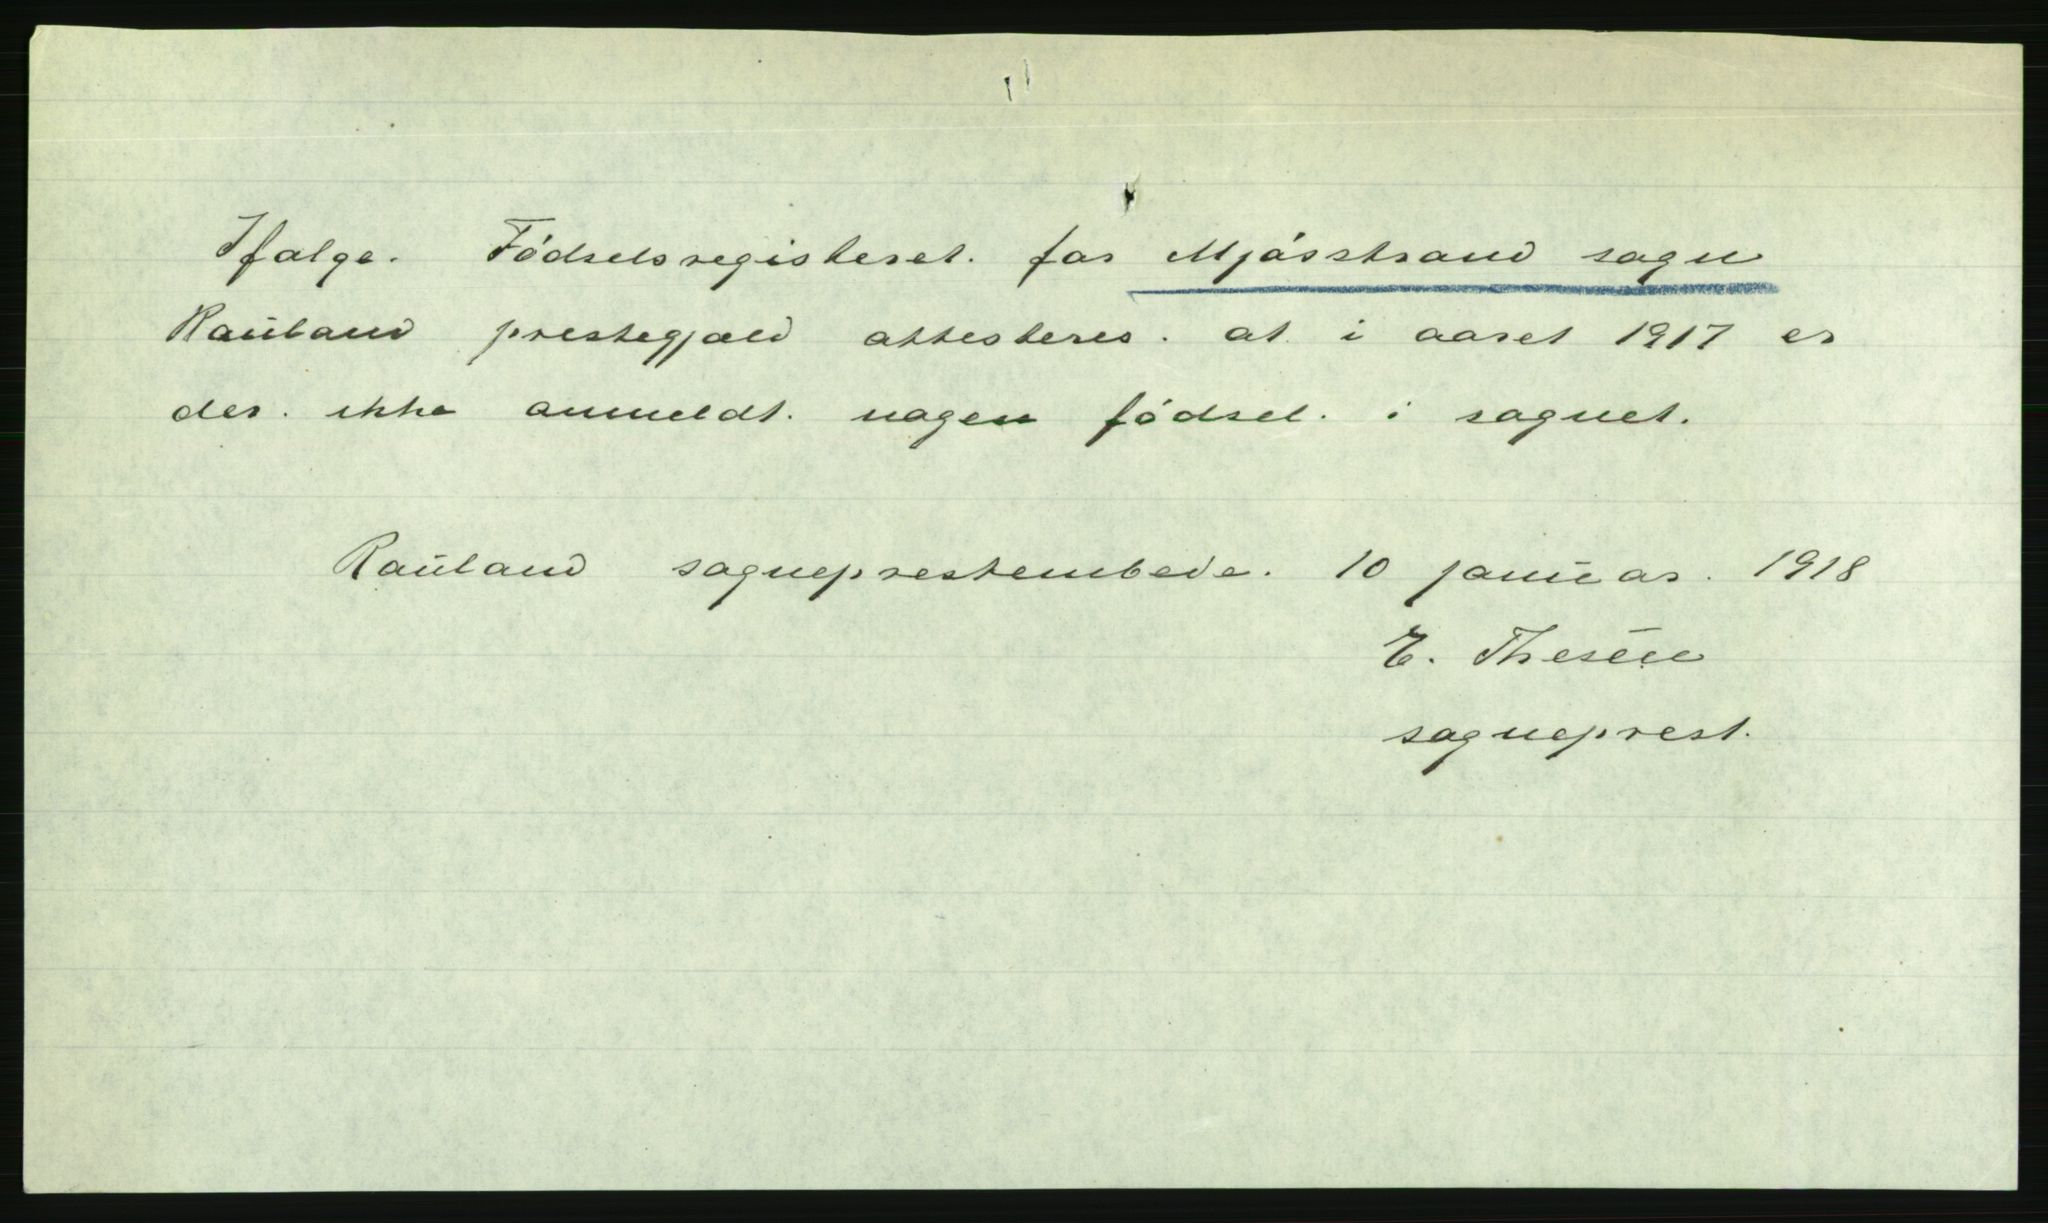 Ifølge Fødselsregisteret for Mjøsstrand sogn
Rauland prestegjæld attesteres at i aaret 1917 er
der ikke anmeldt nogen fødsel i sognet.
Rauland sogneprestembede 10 januar 1918
E. Thesen
sogneprest.